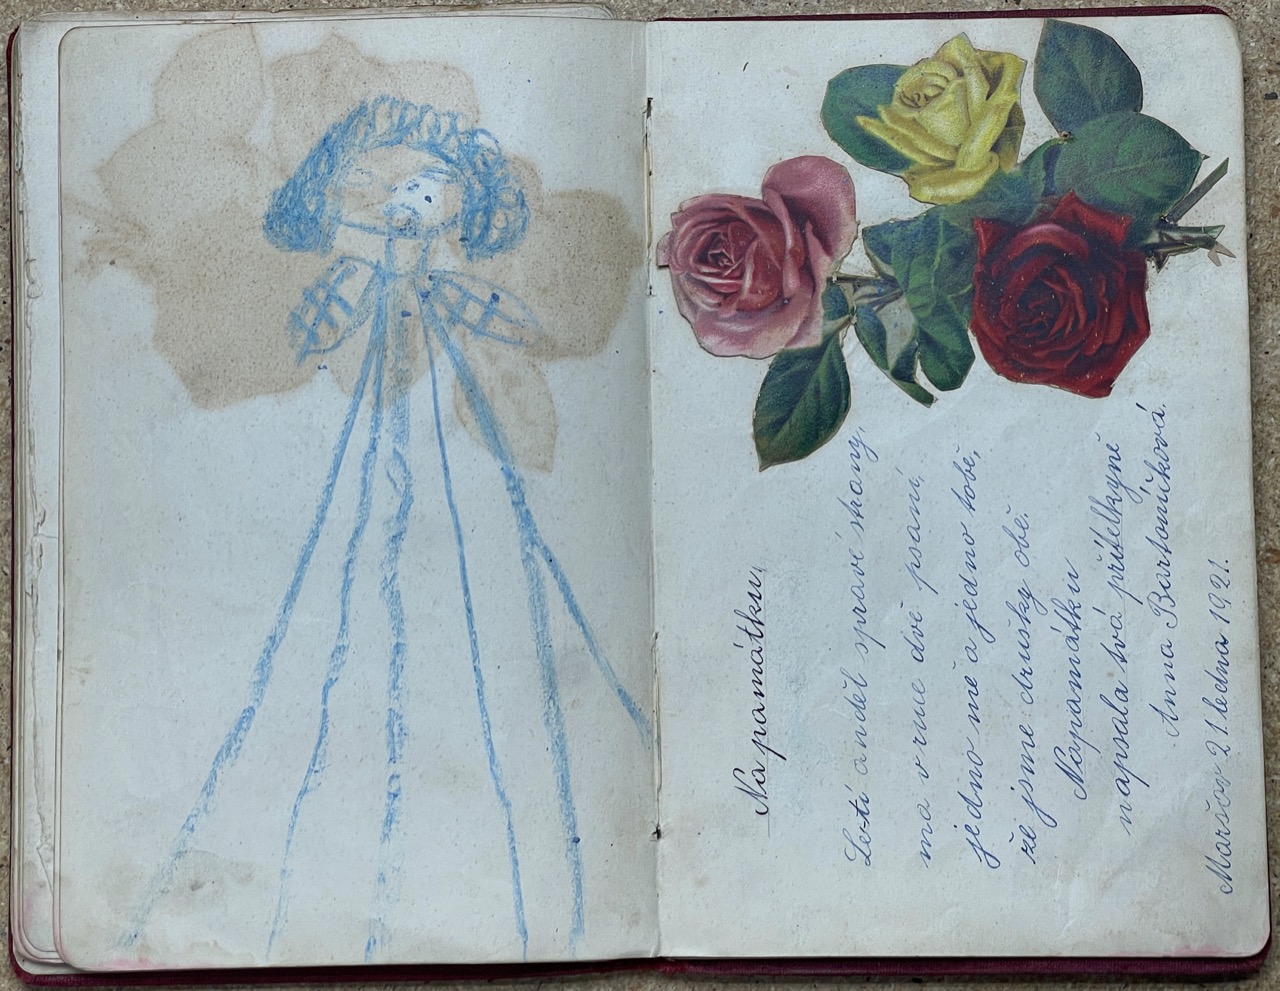 Na památku,
Letí anděl s pravé strany,
má v ruce dvě psaní,
jedno mě a jedno tobě,
že jsme družky obě.
Napamátku
napsala tvá přítelkyně
Anna Bartoníčková.
Maršov 21. ledna 1921.